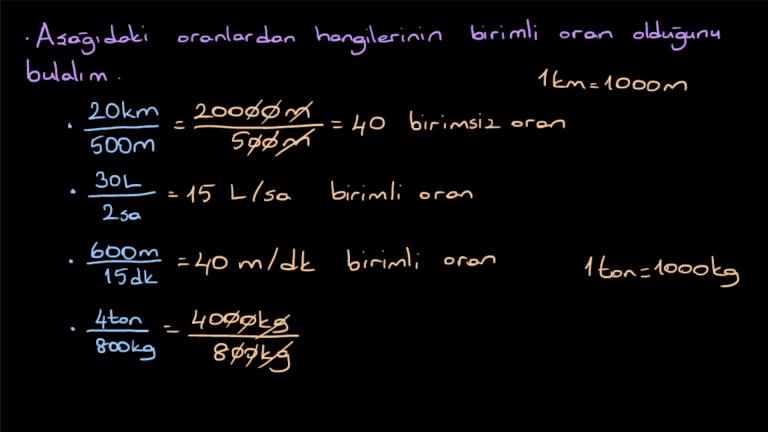 · Aşağıdaki oranlardan hangilerinin birimli oran olduğunu
bulalım.
1km=1000m
· 20km/500m = 20000m/500m = 40 birimsiz oran
· 30L/2sa = 15 L/sa birimli oran
· 600m/15dk = 40 m/dk birimli oran
1ton=1000kg
· 4ton/800kg = 4000kg/800kg